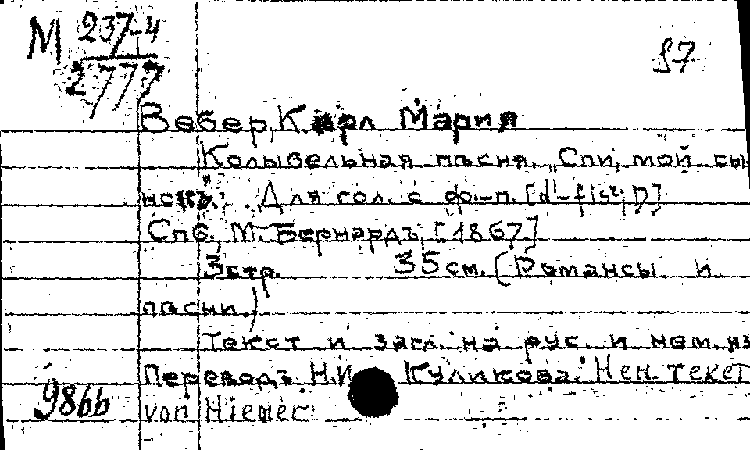 М 237-4
2777
97
Вебер, Карл Мария
Колыбельная пѣсня. "Спи, мой сы-
нокъ". Для гол. с ф.-п. [d'-fis²; D]
Спб., М. Бернардъ, [1867]
3 стр. 35 см. (Романсы и
пѣсни.)
Текст и загл. на рус. и нем. яз
Переводъ Н.И. Куликова. Нем. текст
von Hiemer.
9866